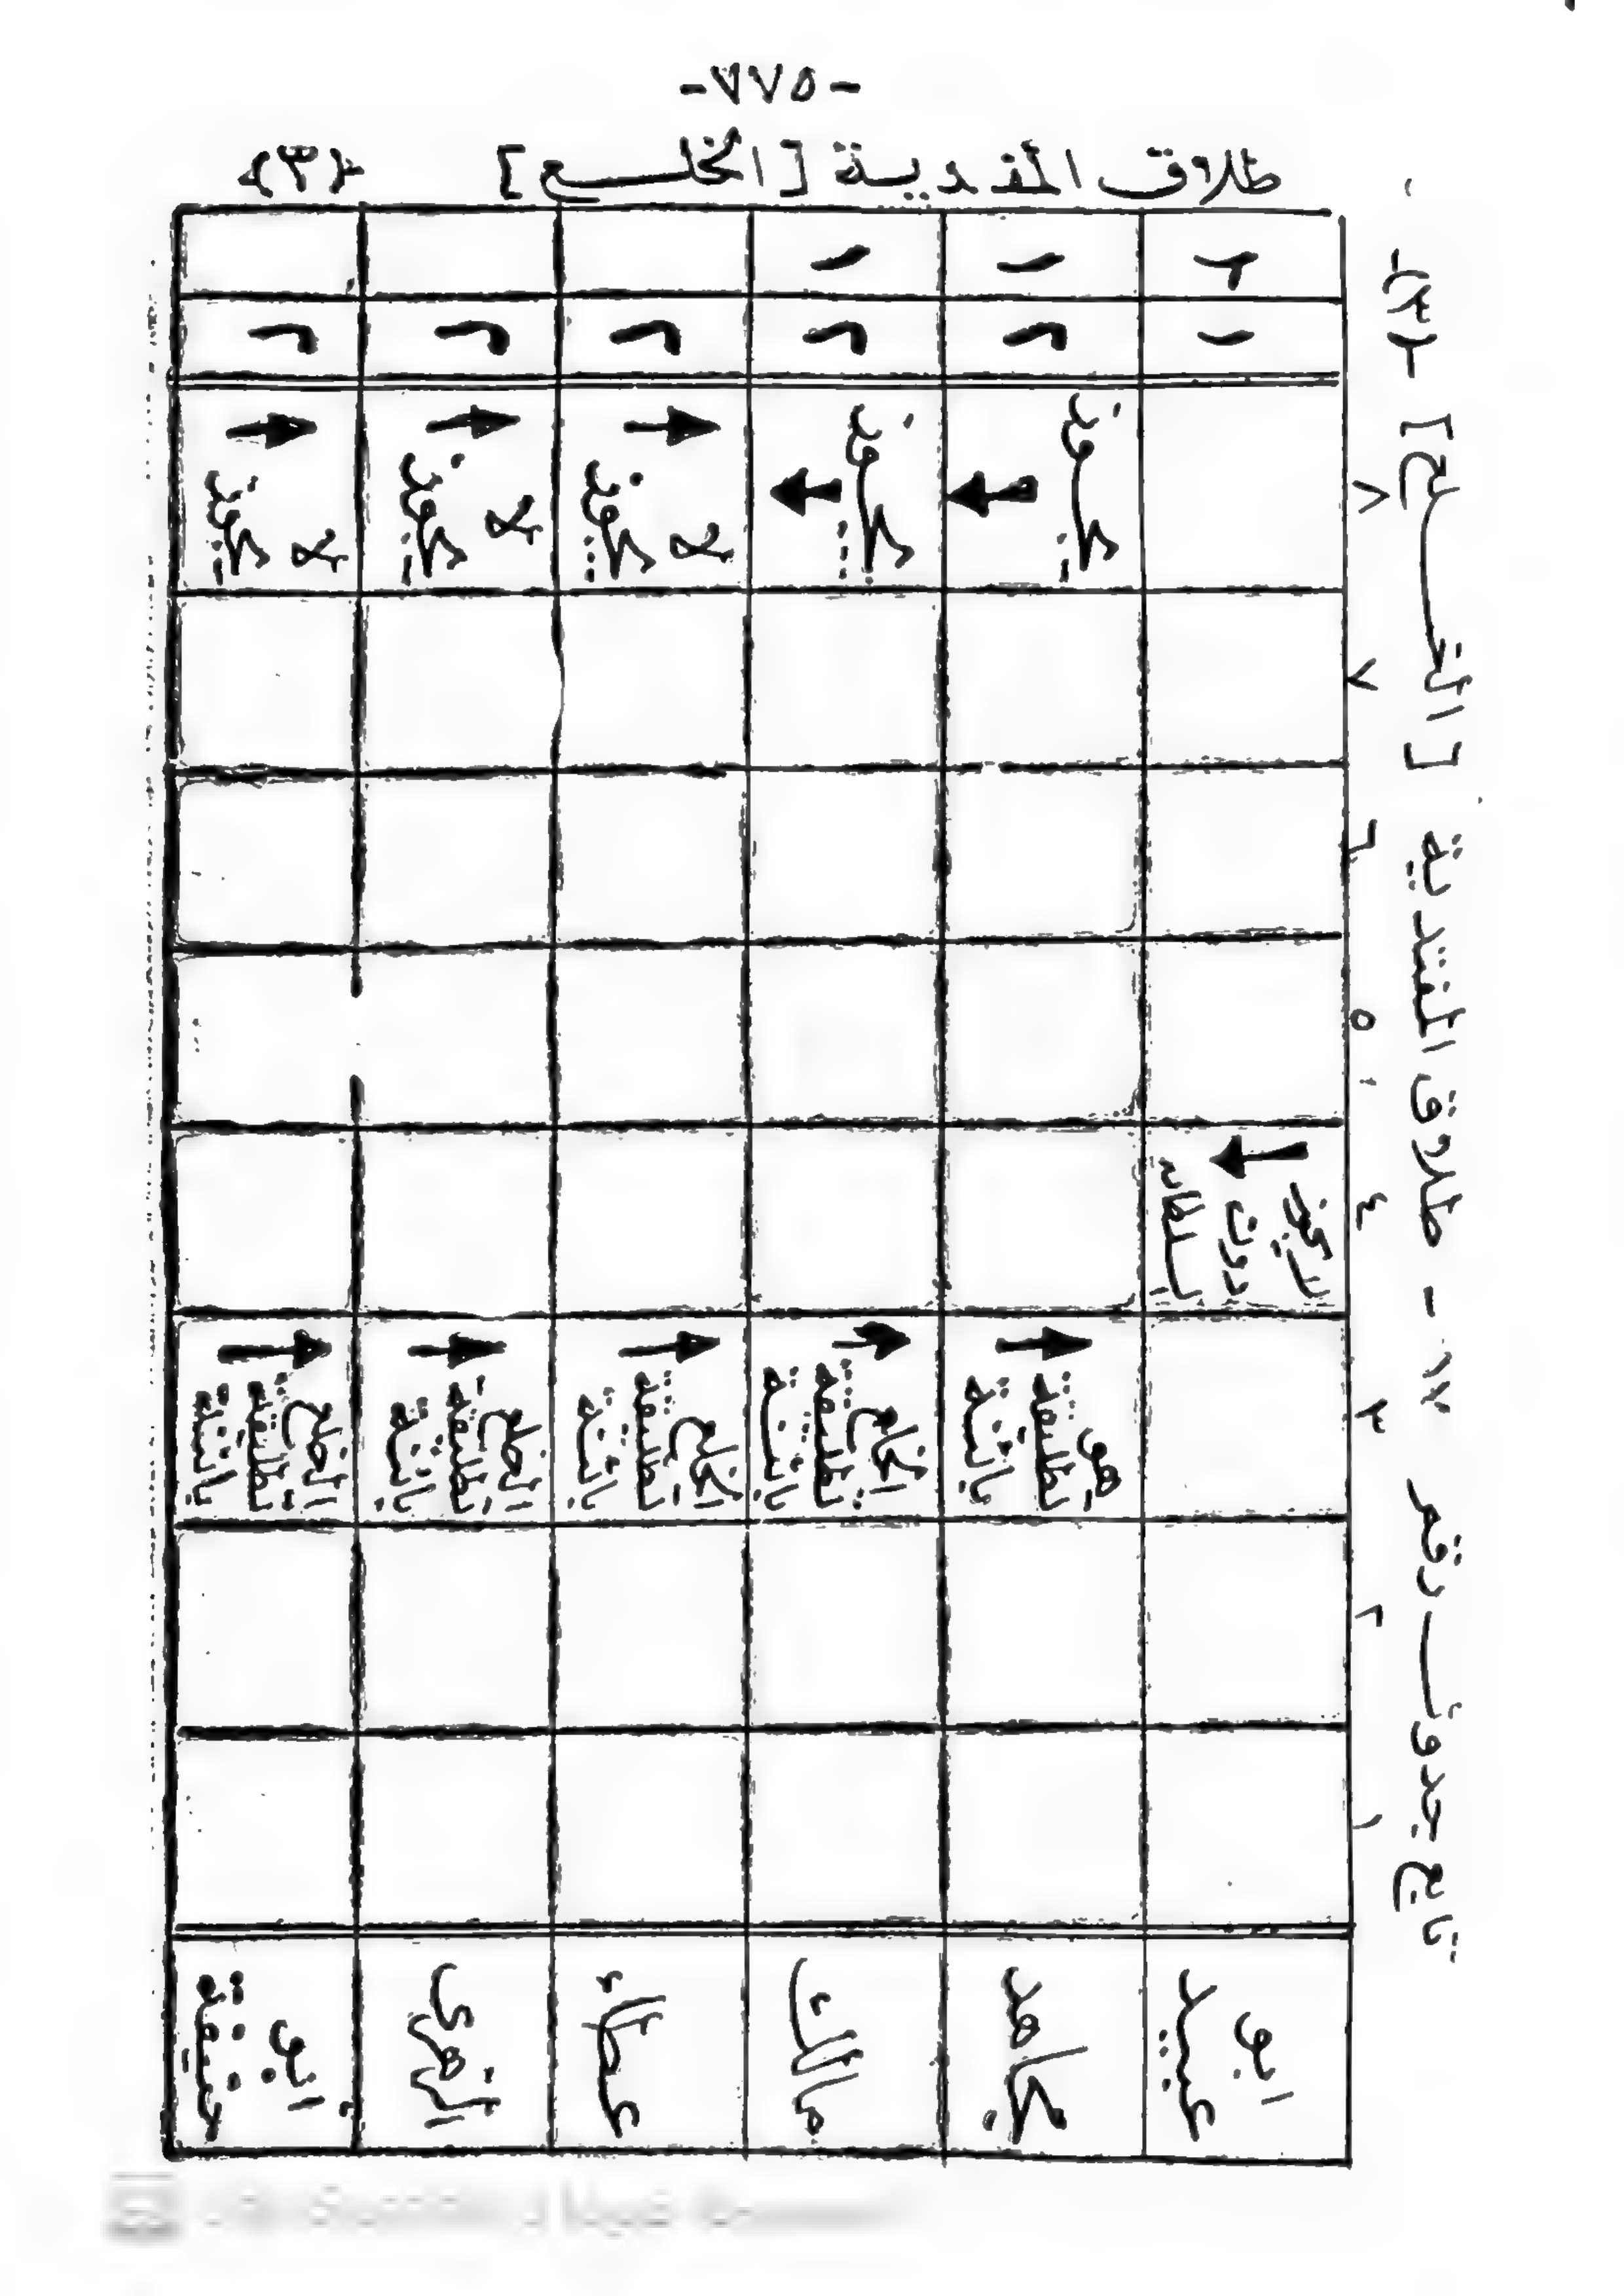 -٧٧٥-
طلاق المفدية [الخلع] {٣}
تابع جدول رقم ١٧ - طلاق المفتدية [الخلع] -(٣)-
١ ٢ ٣ ٤ ٥ ٦ ٧ ٨
ابو
عبيد
لا يجوز
دون
السلطان
١
مجاهد
هي
تطليقة
بائنة
يجوز
٢
١
مالك
الخلع
تطليقة
بائنة
يجوز
٢
١
عطاء
الخلع
تطليقة
بائنة
لا
يجوز
٢
الزهري
الخلع
تطليقة
بائنة
لا
يجوز
٢
ابو
حنيفة
الخلع
تطليقة
بائنة
لا
يجوز
٢